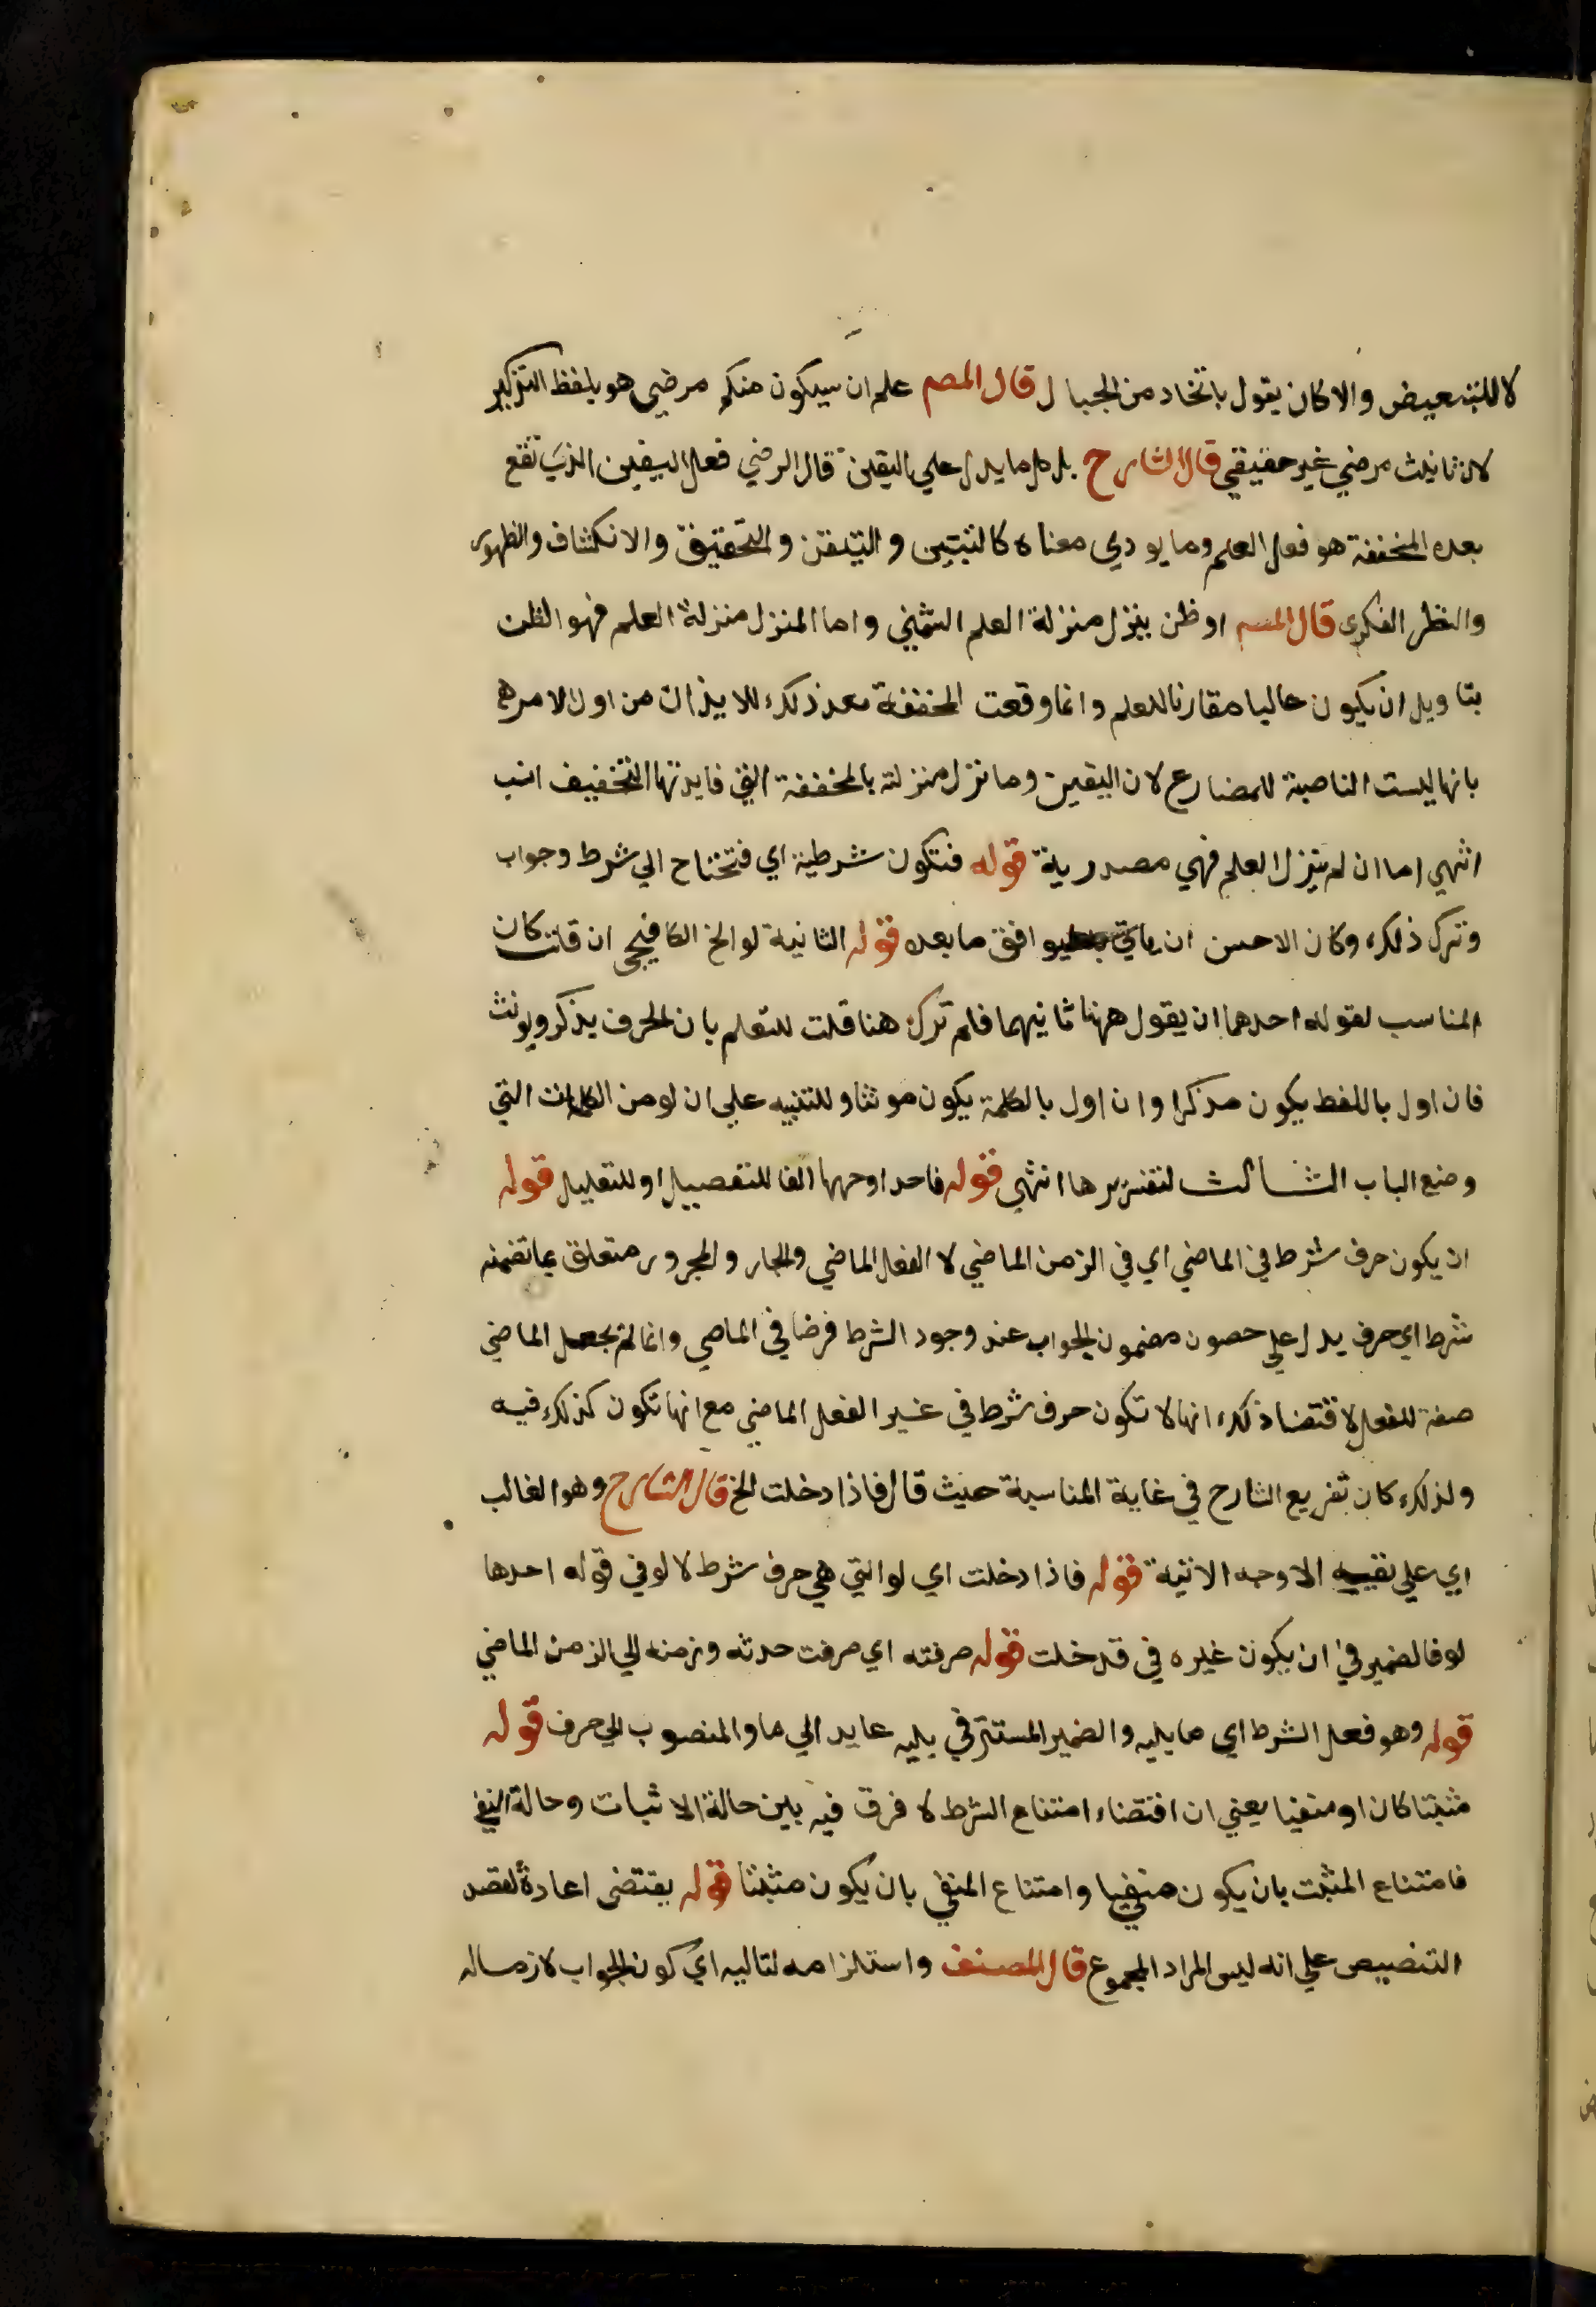 لا للتبعيض والا كان يقول باتخاد من الجبال قال المصم علم ان سيكون منكم مرضي هو بلفظ التذكير
لان تانيث مرضي غير حقيقي قال الشارح بل كل ما يدل علي اليقين قال الرضي فعل اليقين الذي تقع
بعده المخففة هو فعل العلم وما يودي معناه كالتبين والتيقن والتحقيق والانكشاف والظهور
والنظر الفكري قال المسم او ظن ينزل منزلة العلم الشمني واما المنزل منزلة العلم فهو الظن
بتاويل ان يكون عاليا مقارنا للعلم وانما وقعت المخففة بعد ذلك للايذان من اول الامر
بانها ليست الناصبة للمضارع لان اليقين وما نزل منزلته بالمخففة التي فايدتها التخفيف انسب
انتهي اما ان لم ينزل العلم فهي مصدرية قوله فتكون شرطية اي فتحتاج الي شرط وجواب
وترك ذلك وكان الاحسن ان ياتي ليوافق ما بعده قوله الثانية لو الخ الكافيجي ان قلت كان
المناسب لقوله احدهما ان يقول ههنا ثانيهما فلم ترك هنا قلت للتعلم بان الحرف يذكر ويونث
فان اول باللفظ يكون مذكرا وان اول بالكلمة يكون مونثا وللتنبيه علي ان لو من الكلمات التي
وضع الباب الثالث لتفسيرها انتهي قوله فاحد اوجهها الفا للتفصيل او للتعليل قوله
ان يكون حرف شرط في الماضي اي في الزمن الماضي لا الفعل الماضي والجار والمجرور متعلق بما تضمنه
شرط اي حرف يدل علي حصون مضمون الجواب عند وجود الشرط فرضا في الماضي وانما لم يجعل الماضي
صفة للفعل لاقتضا ذلك انها لا تكون حرف شرط في غير الفعل الماضي مع انها تكون كذلك فيه
ولذلك كان تفريع الشارح في غاية المناسبة حيث قال فاذا دخلت الخ قال الشارح وهو الغالب
اي علي بقيه الاوجه الاتية قوله فاذا دخلت اي لو التي هي حرف شرط لا لو في قوله احدها
لو فالضمير في ان يكون غيره في قد خلت قوله صرفته اي صرفت حدثه وزمنه الي الزمن الماضي
قوله وهو فعل الشرط اي ما يليه والضمير المستتر في يليه عايد الي ما والمنصوب الي حرف قوله
مثبتا كان او منفيا يعني ان اقتضاء امتناع الشرط لا فرق فيه بين حالة الاثبات وحالة النفي
فامتناع المثبت بان يكون منفيا وامتناع المنفي بان يكون مثبتا قوله يقتضي اعادة لقصد
التنصيص علي انه ليس المراد المجموع قال المصنف واستلزامه لتاليه اي كون الجواب لازما له